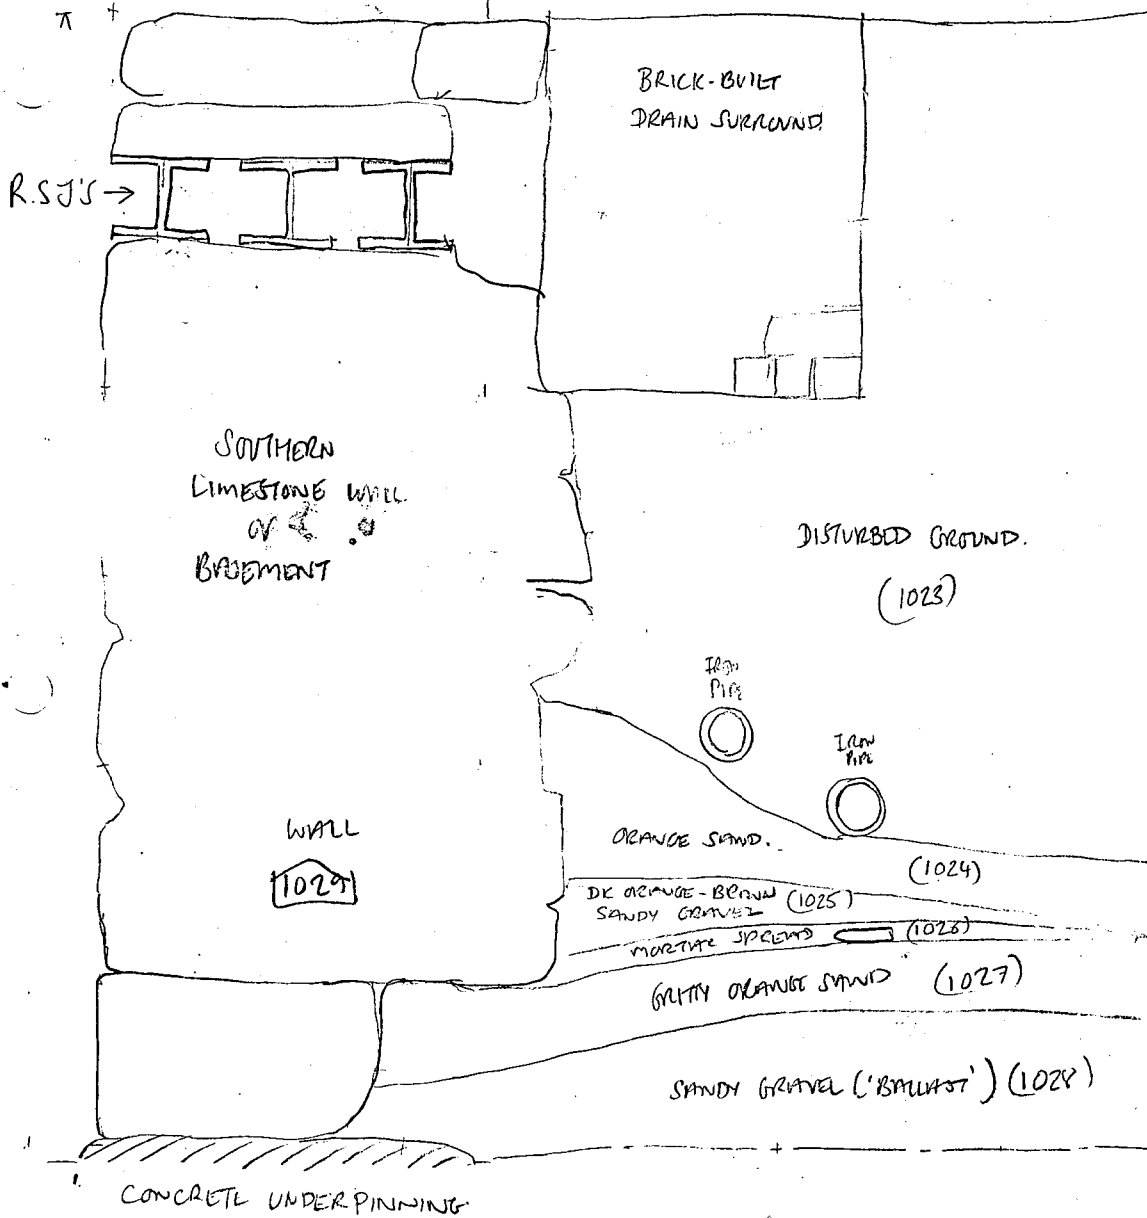 BRICK-BUILT
DRAIN SURROUND.
R.S.J'S →
SOUTHERN
LIMESTONE WALL
OF
BASEMENT
DISTURBED GROUND.
(1023)
IRON
PIPE
IRON
PIPE
WALL
1029
ORANGE SAND.
(1024)
DK ORANGE-BROWN (1025)
SANDY GRAVEL
MORTAR SPREAD (1026)
GRITTY ORANGE SAND (1027)
SANDY GRAVEL ('BALLAST') (1028)
CONCRETE UNDERPINNING